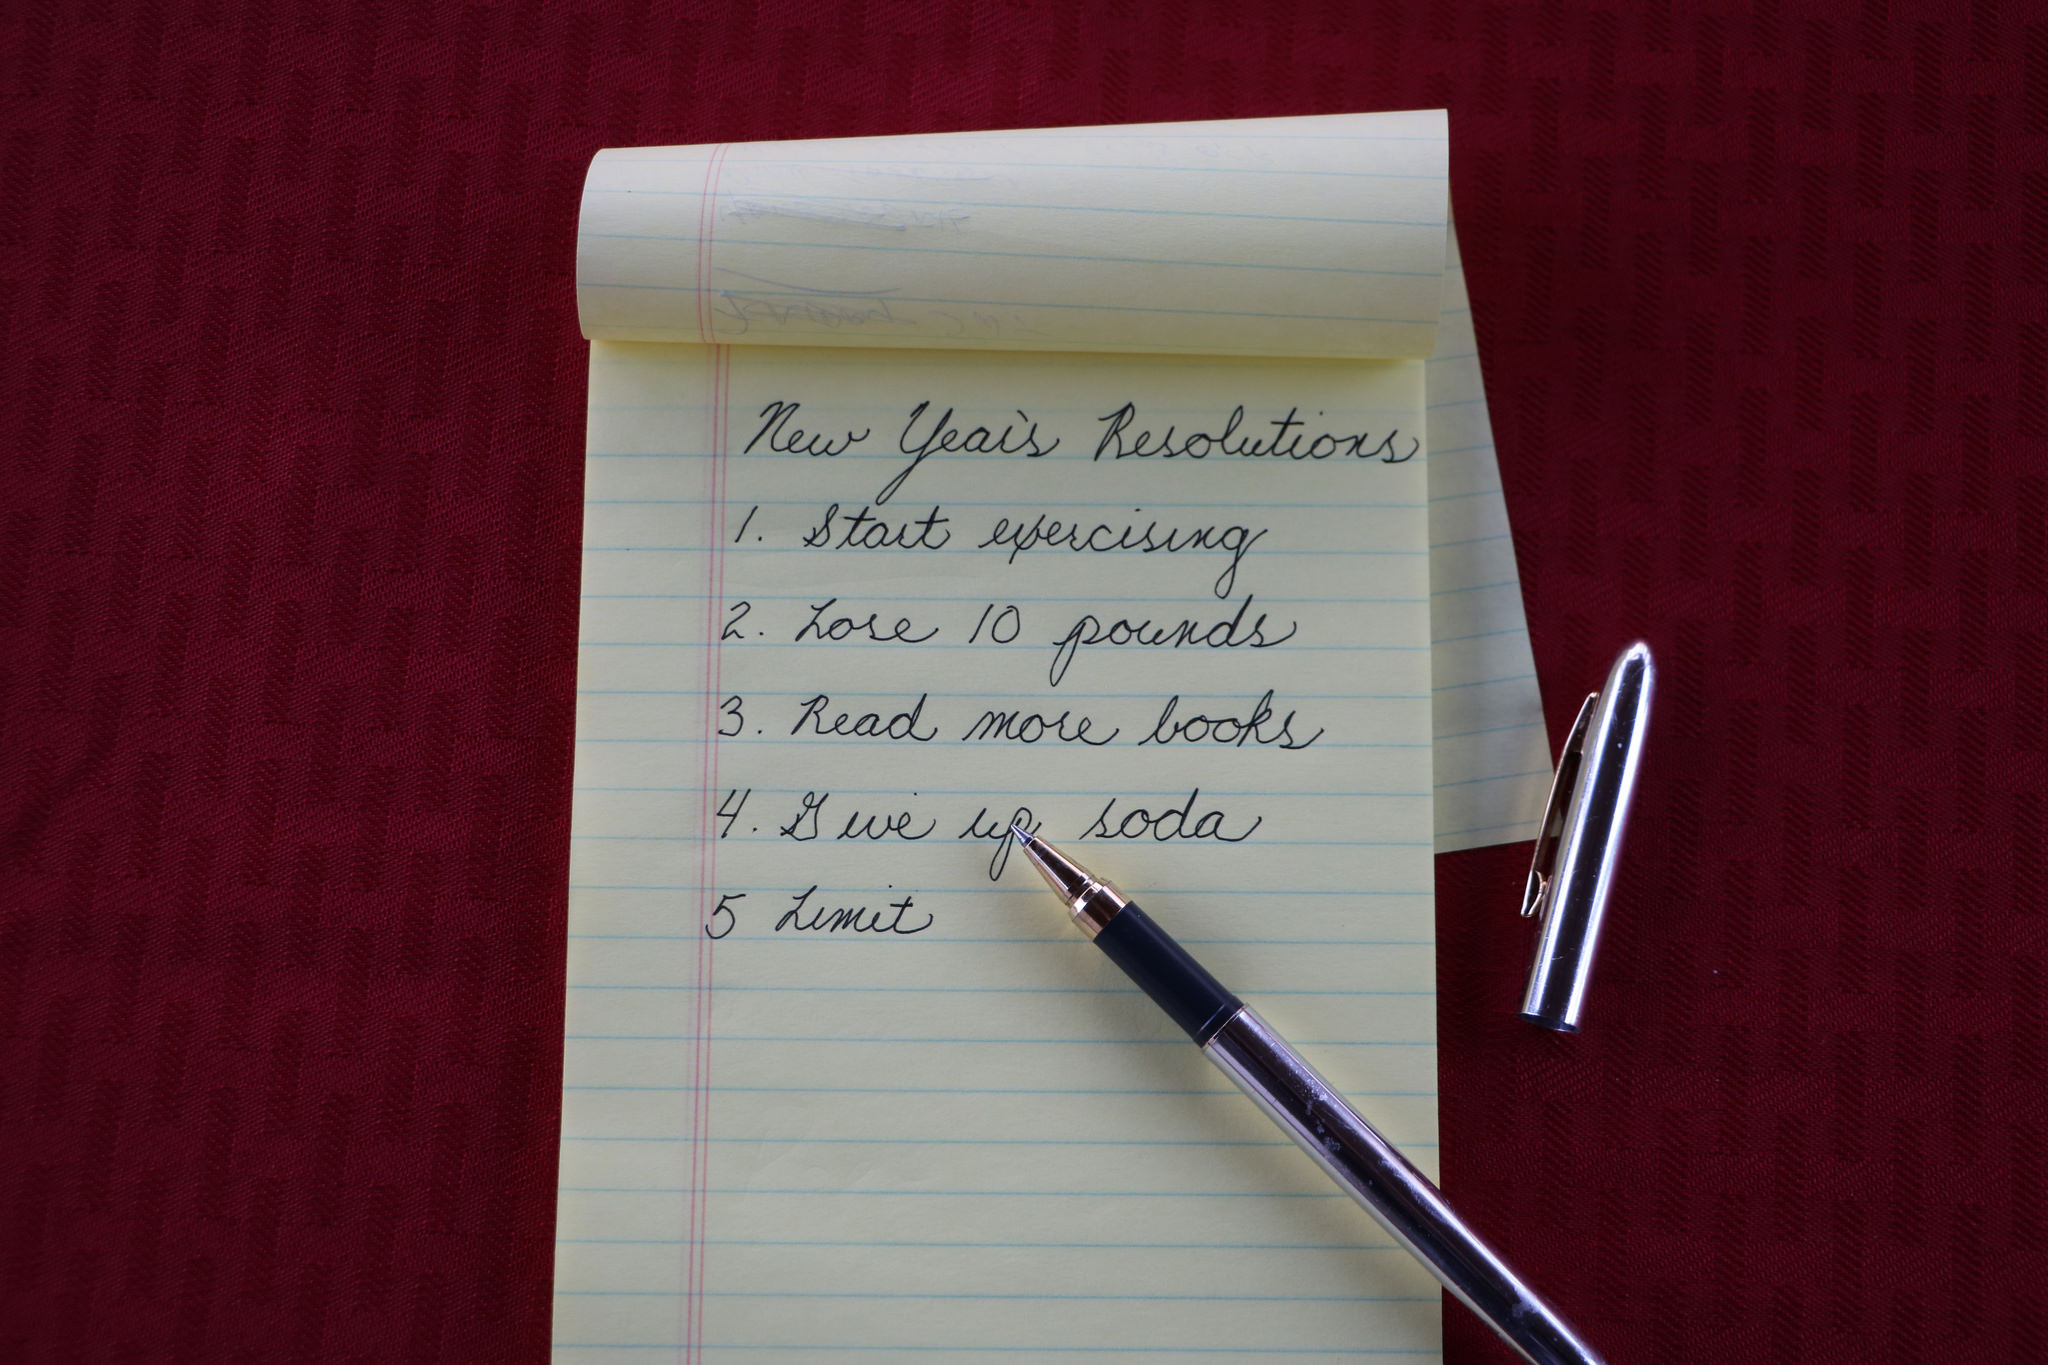 New Year's Resolutions
1. Start exercising
2. Lose 10 pounds
3. Read more books
4. Give up soda
5 Limit